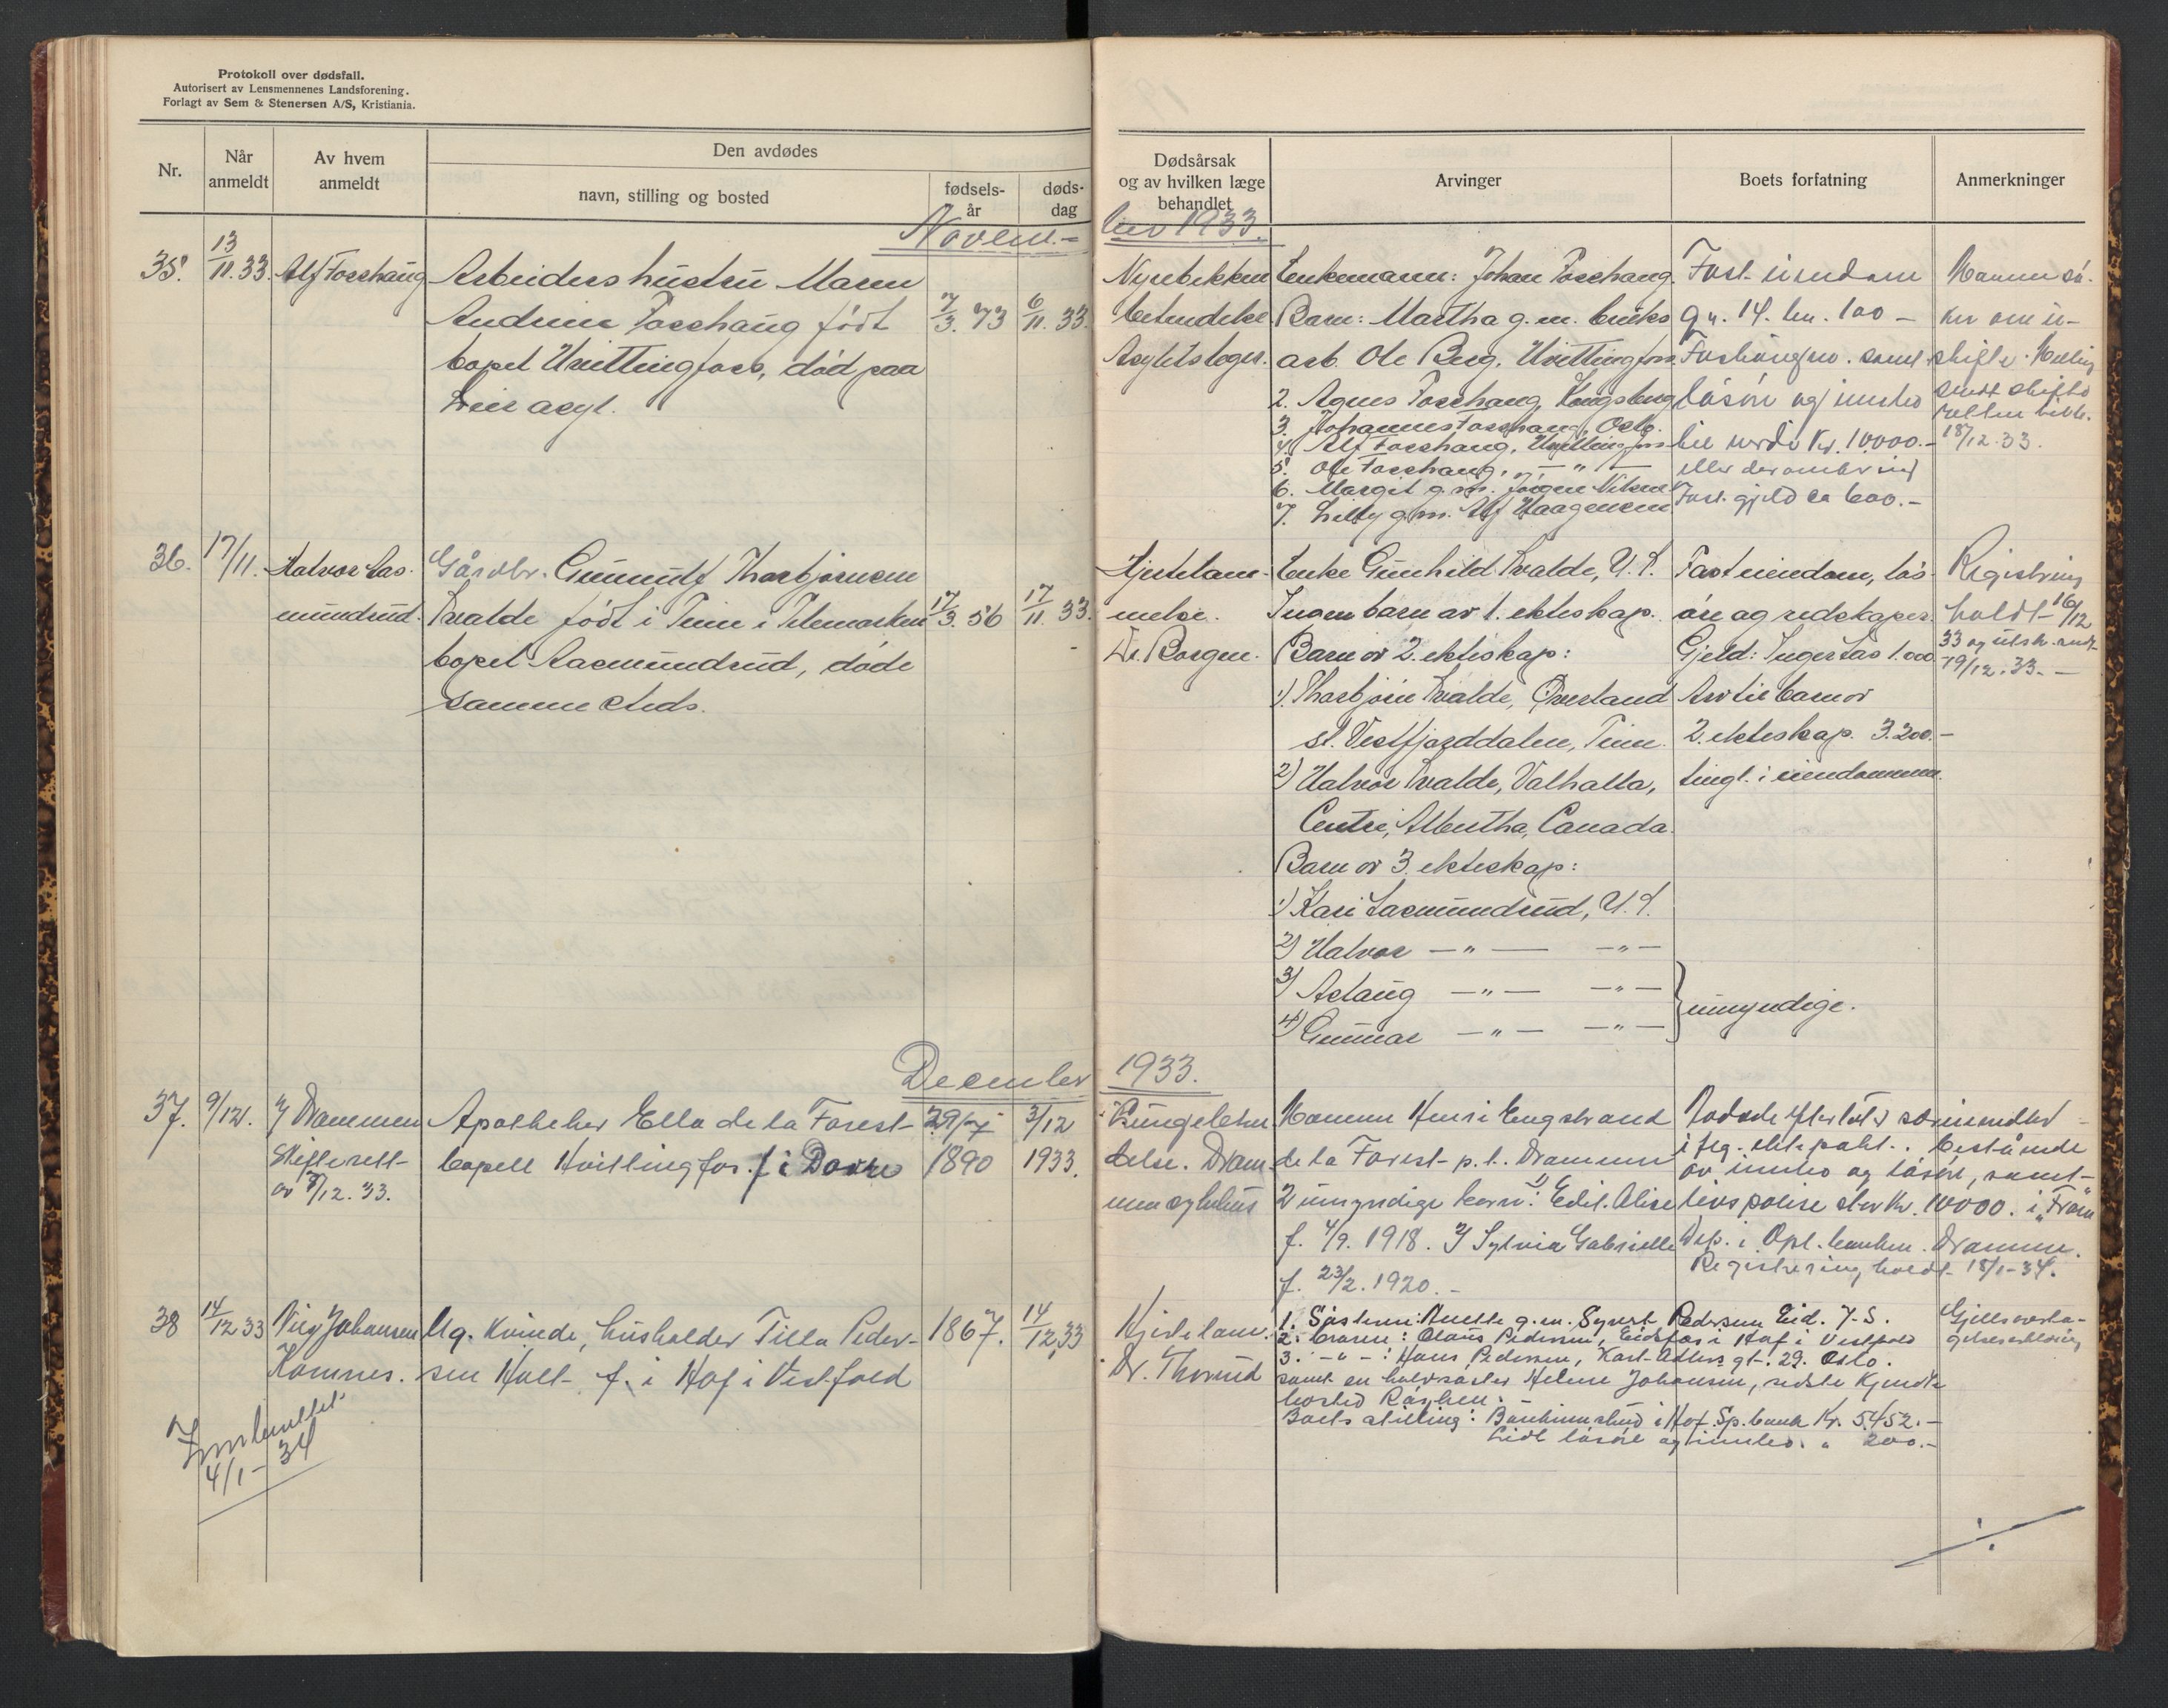 Protokoll over dødsfall.
Autorisert av Lensmennenes Landsforening.
Forlagt av Sem & Stenersen A/S, Kristiania.
Nr.
Når anmeldt
Av hvem anmeldt
Den avdødes
navn, stilling og bosted
fødsels-år
døds-dag
Dødsårsak og av hvilken læge behandlet
Arvinger
Boets forfatning
Anmerkninger
Novem.-
ber 1933.
35.
13/11.33.
Alf Fosshaug
Arbeiders hustru Maren
Andrine Fosshaug født
bopel Hvittingfoss, død paa
Lier asyl.
7/3.73
6/11.33.
Nyrebekken
betendelse
Asylets læger.
Enkemann: Johan Fosshaug.
Barn: Martha g.m. bruks
arb. Ole Berg, Hvittingfoss
2. Agnes Fosshaug, Kongsberg
3. Johannes Fosshaug, Oslo.
4. Alf Fosshaug, Hvittingfoss
5. Ole Fosshaug, — " —
6. Margit g.m. Jørgen
7. Lilly g.m. Alf Haagensen
Fast eiendom
gn. 14. bn. 100 —
samt
løsøre og innbo
til verdi Kr. 10000.-
eller deromkring
Fast. gjeld ca 600.-
Mannen sø-
ker om u-
skifte.
sendt skifte
retten
18/12.33.
36.
17/11.
Halvor Aas-
mundrud.
Gårdbr. Gunnulf Thorbjørnsen
Kvalde født i Tinn i Telemarken
bopel Aasmundrud, døde
samme steds.
17/3.56
17/11.33.
Hjertelam-
melse.
Dr. Borgen.
Enke Gunhild Kvalde, U.S.
Ingen barn av 1. ekteskap.
Barn av 2. ekteskap:
1) Thorbjørn Kvalde, Øverland
st. Vestfjorddalen, Tinn.
2) Halvor Kvalde, Valhalla,
Centre, Albertha, Canada.
Barn av 3. ekteskap:
1) Kari Aasmundrud, U.S.
2) Halvor — " — — " —
3) Aslaug — " — — " —
4) Gunnar — " — — " —
umyndige.
Fast eiendom, løs-
øre og redskaper.
Gjeld: Inger Aas 1.000
Arv til barn av
2. ekteskap. 3.200.—
tingl. i eiendommen.
Registrering
holdt 16/12
33 og utskr. sendt
19/12.33.—
December
1933.
37.
9/12.
Drammen
Skifterett
av 8/12.33.
Apotheker Ella de la Forest
bopell Hvittingfos. f. i
1890
3/12
1933.
Lungebeten
delse. Dram-
men sykehus
Mannen Henri Engstrand
de la Forest p.t. Drammen
2 umyndige barn: 1) Edit. Alise
f. 4/9. 1918. 2) Sylvia Gabrielle
f. 23/2. 1920.—
Avdøde efterlot særeiendeler
i flg. ektepakt. bestående
av innbo og løsøre, samt
livspolise stor Kr. 10000. i "Fram"
Dep. i Opl. banken. Drammen.
Registrering holdt 18/1-34.
38
14/12 33
Johansen
Komnes.
Ug. Kvinde, husholder Tilla Peder-
sen Holt f. i Hof i Vestfold
1867.
14/12.33
Hjertelam.
Dr. Thorud
1. Søsteren: Anette g.m. Syvert Pedersen Eid. Y.S.
2. broren: Olaus Pedersen, Eidsfos i Hof i Vestfold
3. - " - : Hans Pedersen, Karl-Adlers gt. 29. Oslo.
samt en halvsøster Helene Johansen, sidste kjendte
bosted Røyken.
Boets stilling: Bankinnskud i Hof Sp.bank Kr. 5452.-
Lidt løsøre og innbo. " 200.-
Gjelsoverta-
gelseserklæring
Innberettet
4/1-34